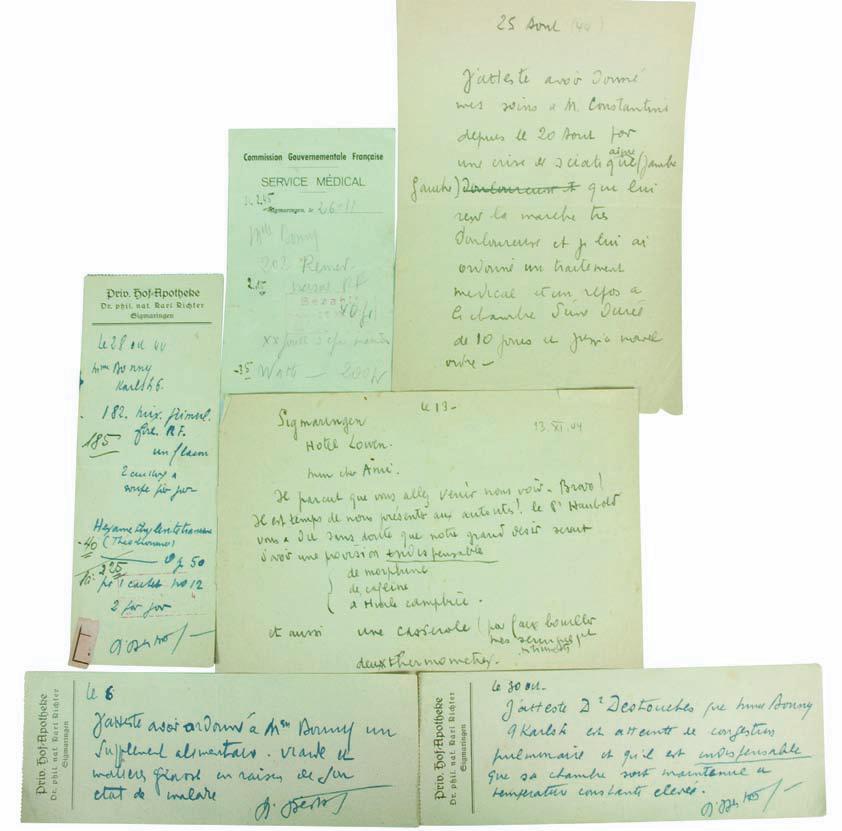 25 Aout (44)
J'atteste avoir donné
mes soins a M. Constantini
depuis le 20 Aout for
une crise de sciatique aigue (Jambe
Gauche) douloureuse que lui
rend la marche tres
Douloureuse et je lui ai
ordonné un traitement
medical et un repos a
la chambre d'une Durée
de 10 jours et jusqu'a nouvel
ordre -
Commission Gouvernementale Française
SERVICE MÉDICAL
Sigmaringen, le 26-11
Mme Bonny
202
Bezahlt
XX
200
Priv. Hof-Apotheke
Dr. phil. nat. Karl Richter
Sigmaringen
Le 28 44
Mme Bonny
Karlstr 6.
182. mix.
185 R.F.
un flacon
2 a
soupe par jour
-40
50
225
1 cachet no 12
2 par jour
le 13-
13. XI. 44
Sigmaringen
Hotel Lowen.
mon cher Ami.
Il parait que vous allez venir nous voir - Bravo!
Il est temps de nous présenter aux autorités! le Dr Haubold
vous a dit sans doute que notre grand desir serait
d'avoir une provision indispensable
de morphine
de caféine
d Huile camphrée.
et aussi une casserole! (pour faux bouillir
mes seringues et
deux thermometres.
Priv. Hof-Apotheke
Dr. phil. nat. Karl Richter
Sigmaringen
le 6
J'atteste avoir ordonné à Mme Bonny un
supplement alimentaire. viande et
matieres grasses en raison de son
etat de malade
Priv. Hof-Apotheke
Dr. phil. nat. Karl Richter
Sigmaringen
le 30
J'atteste Dr Destouches que Mme Bonny
9 Karlstr est atteinte de congestion
pulmonaire et qu'il est indispensable
que sa chambre soit maintenue a
temperature constante elevée.